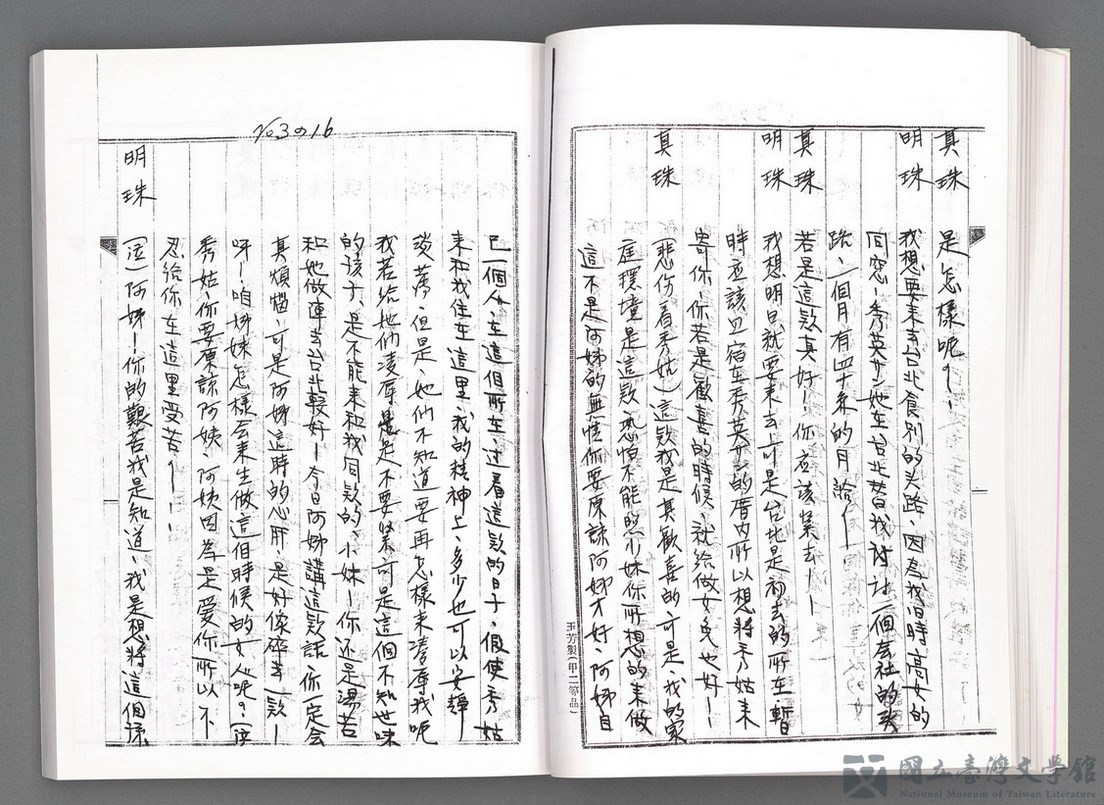 真珠 是怎樣呢?!
明珠 我想要来去台北食別的头路、因為我旧時高女的
同窓!秀英她在台北替我討一個会社的头
路、一個月有四十来的月給!
真珠 若是這款真好!你應該緊去!
明珠 我想明日就要来去!可是台北是初去的所在、暫
時应該宿在秀英的厝内所以想將秀姑来
寄你!你若是歡喜的時候、就給做女兒也好!!
真珠 (悲伤看秀姑)這款我是真歡喜的、可是、我的家
庭環境是這款、恐怕不能照小妹你所想的来做
這不是阿姊的無情你要原諒阿姊才好、阿姊自
No3の16
己一個人、在這個所在、过着這款的日子、假使秀姑
来和我住在這里、我的精神上、多少也可以安静
淡薄、但是、她们不知道要再怎樣来凌辱我呢
我若給她们凌辱是不要緊、可是這個不知世味
的孩子、是不能来和我同款的、小妹!你还是湯苦
和她做陣去台北較好!今日阿姊講這款話、你一定会
真煩惱、可是阿姊這時的心肝、是好像碎去一款!
呀!咱姊妹怎樣会来生做這個時候的女人呢?(泣)
秀姑、你要原諒阿姨、阿姨因為是愛你所以不
忍給你在這里受苦!!!
明珠 (泣)阿姊!你的艱苦我是知道、我是想將這個孩
玉芳製(甲二等品)
國立臺灣文學館
National Museum of Taiwan Literature